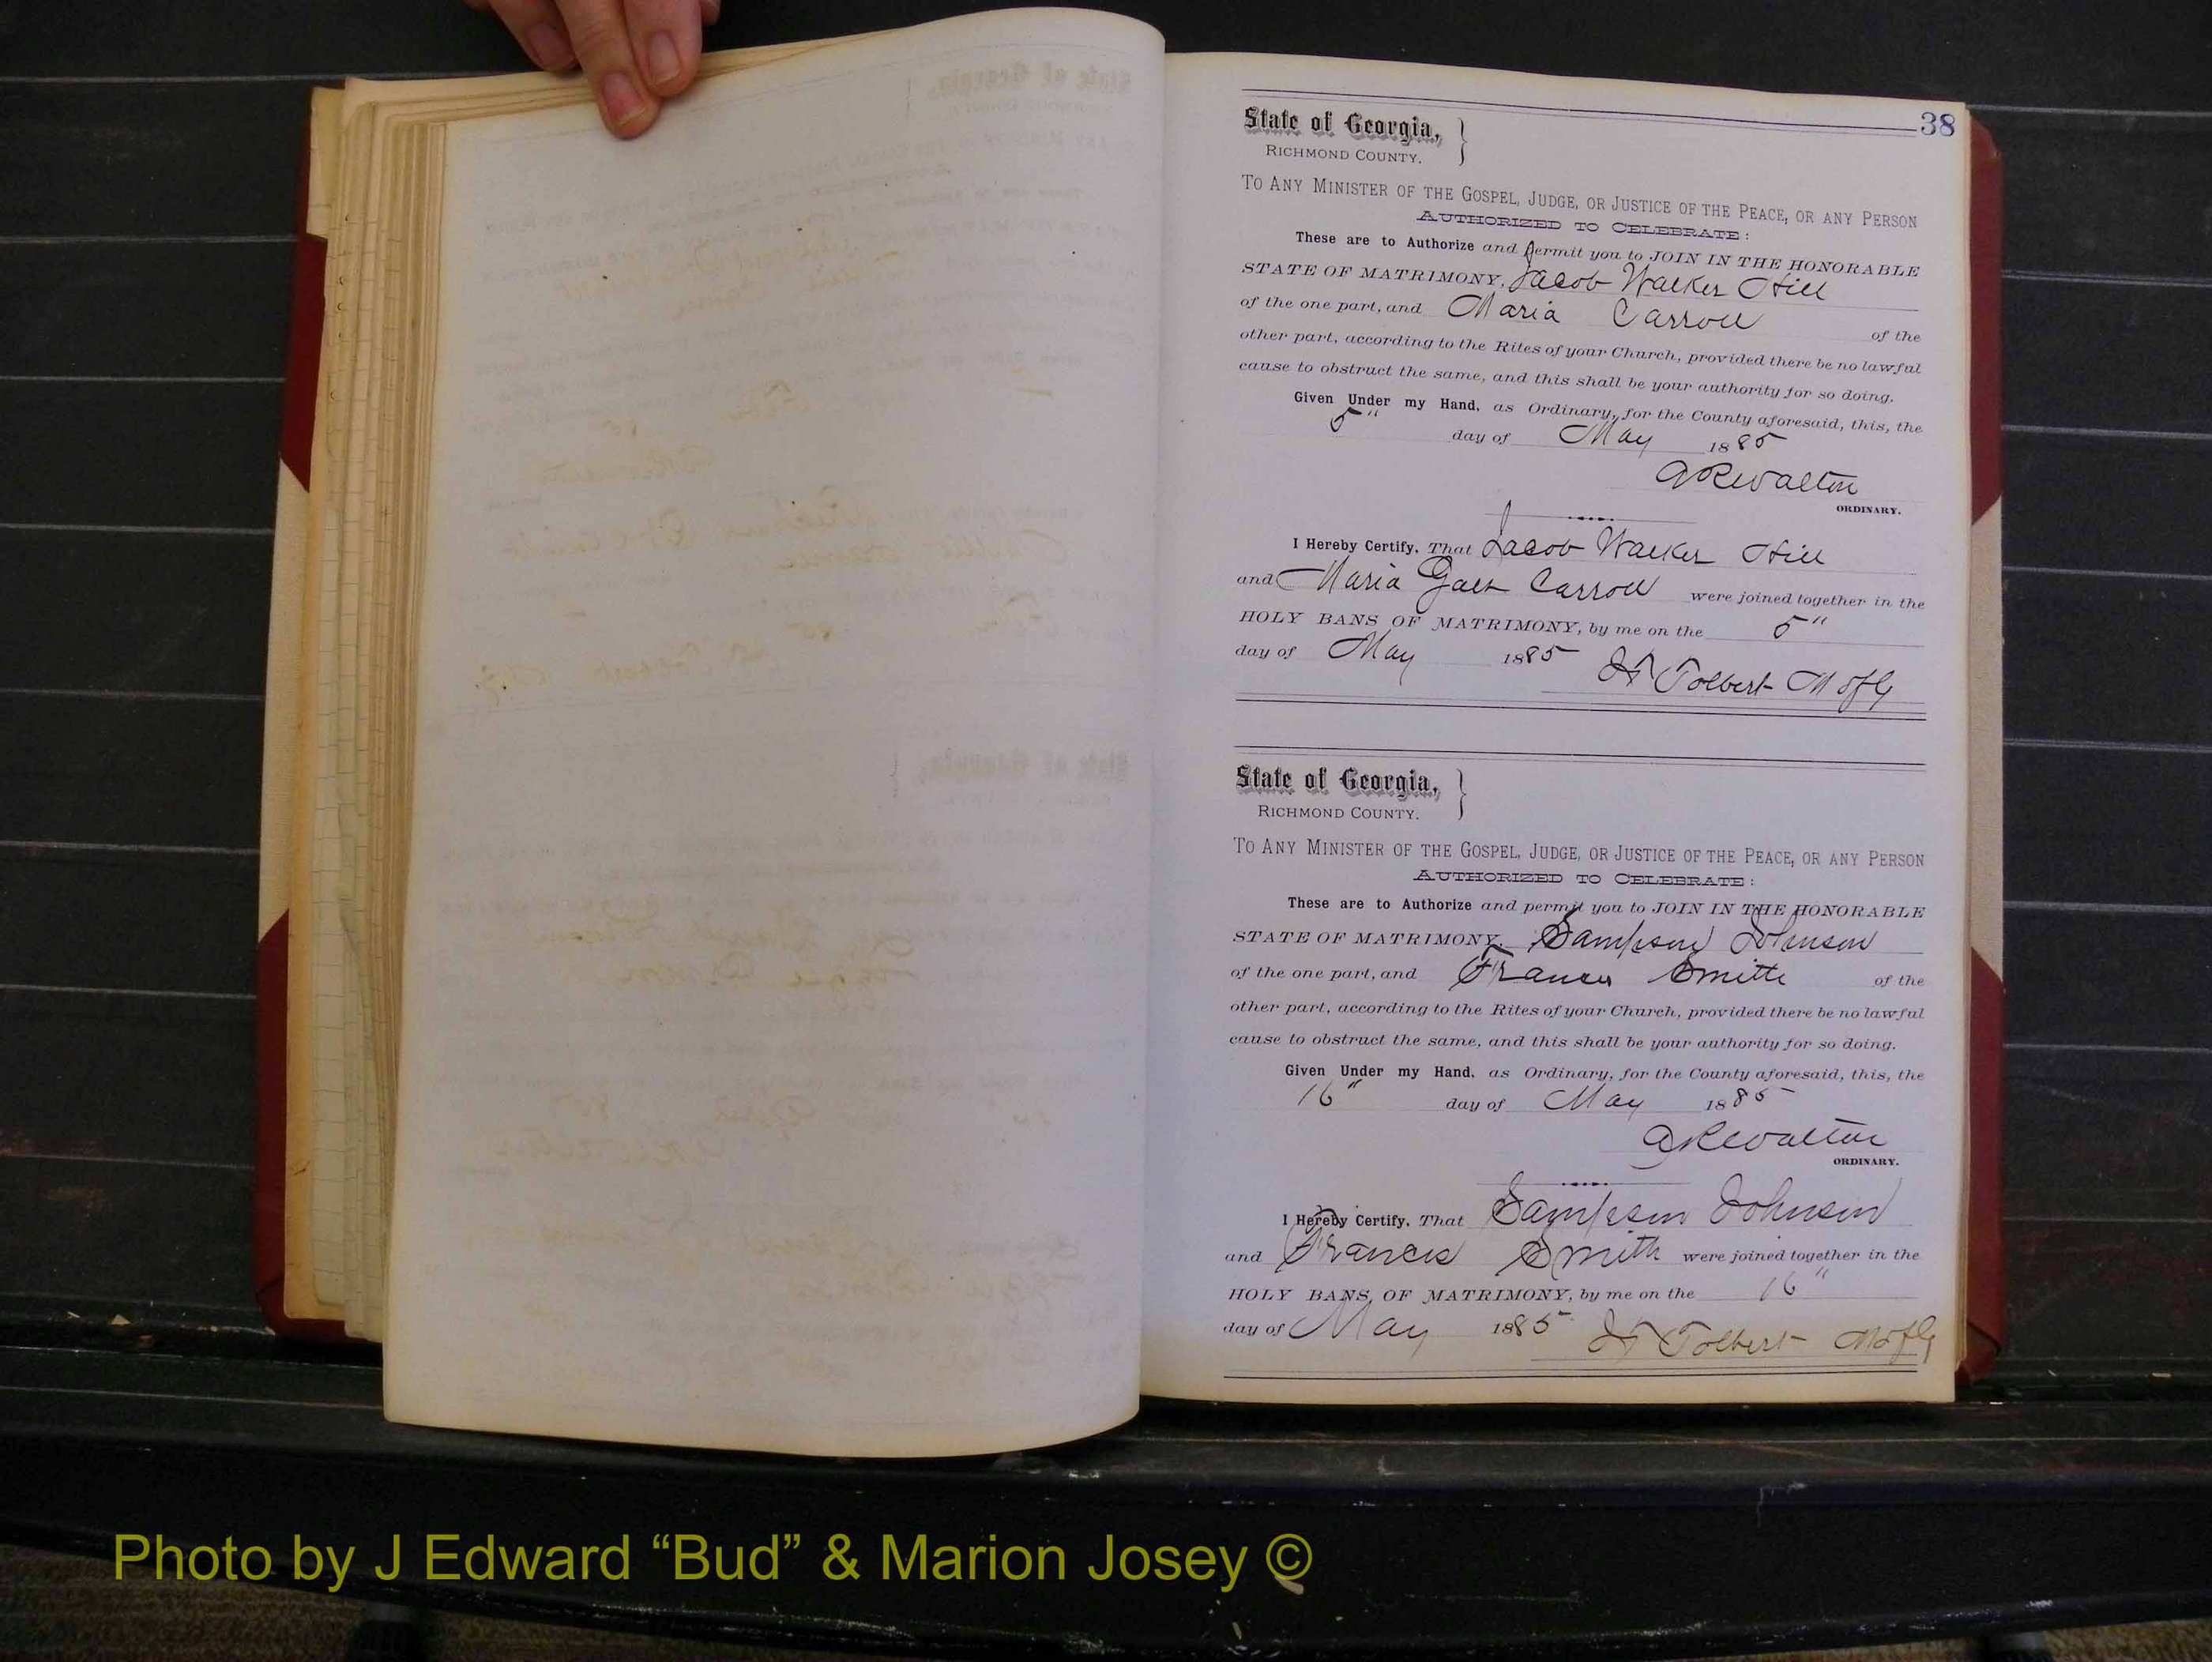 38
State of Georgia,
RICHMOND COUNTY.
TO ANY MINISTER OF THE GOSPEL, JUDGE, OR JUSTICE OF THE PEACE, OR ANY PERSON
AUTHORIZED TO CELEBRATE:
These are to Authorize and permit you to JOIN IN THE HONORABLE
STATE OF MATRIMONY, Jacob Walker Hill
of the one part, and Maria Carroll of the
other part, according to the Rites of your Church, provided there be no lawful
cause to obstruct the same, and this shall be your authority for so doing.
Given Under my Hand, as Ordinary, for the County aforesaid, this, the
5" day of May 1885
A R Walton
ORDINARY.
I Hereby Certify, That Jacob Walker Hill
and Maria Carroll were joined together in the
HOLY BANS OF MATRIMONY, by me on the 5"
day of May 1885 Tolbert M of G
State of Georgia,
RICHMOND COUNTY.
TO ANY MINISTER OF THE GOSPEL, JUDGE, OR JUSTICE OF THE PEACE, OR ANY PERSON
AUTHORIZED TO CELEBRATE:
These are to Authorize and permit you to JOIN IN THE HONORABLE
STATE OF MATRIMONY, Sampson Johnson
of the one part, and Frances Smith of the
other part, according to the Rites of your Church, provided there be no lawful
cause to obstruct the same, and this shall be your authority for so doing.
Given Under my Hand, as Ordinary, for the County aforesaid, this, the
16" day of May 1885
A R Walton
ORDINARY.
I Hereby Certify, That Sampson Johnson
and Francis Smith were joined together in the
HOLY BANS OF MATRIMONY, by me on the 16"
day of May 1885 Tolbert M of G
Photo by J Edward “Bud” & Marion Josey ©